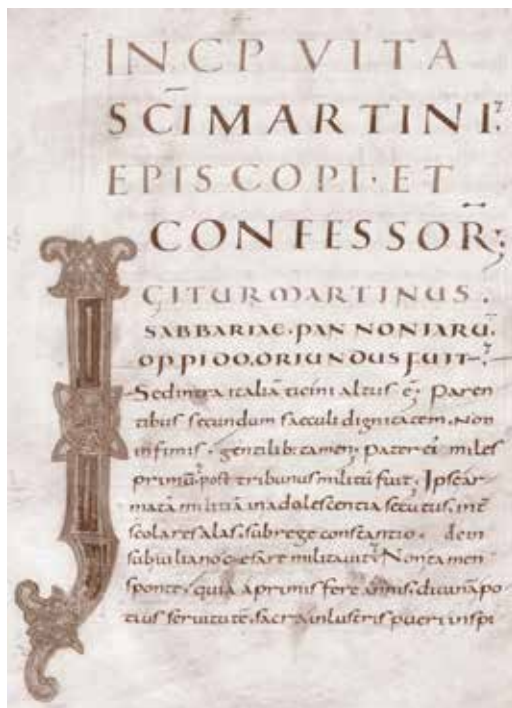 INCP VITA
SCĪMARTINI:
EPISCOPI·ET
CONFESSOR;
I GITUR MARTINUS.
SABBARIAE·PANNONIARŪ.
OPPIDO·ORIUNDUS FUIT
Sed intra italiā ticini altus ē; Paren
tibus secundum saeculi dignitatem, non
infimis, gentilib; tamen; Pater ei' miles
primū, post tribunus militū fuit. Ipse ar
matā militiā in adolescentia secutus, int̄
scolares alas, sub rege constantio. dein
sub iuliano cesare militavit; Non tamen
sponte, quia a primis fere annis, divinā po
tius servitutē, sacra inlustris pueri inspi